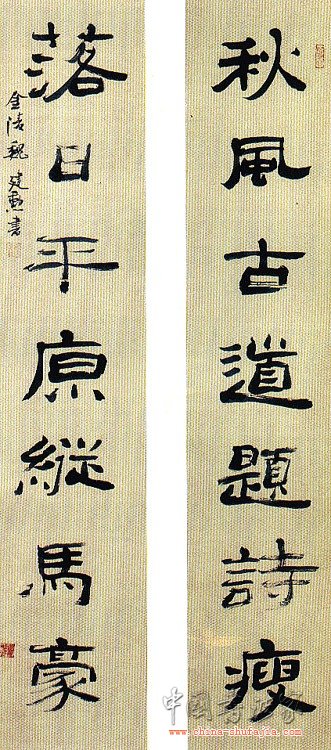 秋風古道題詩瘦
落日平原縱馬豪
金陵魏建勳書
中国书法家
www.china-shufajia.com